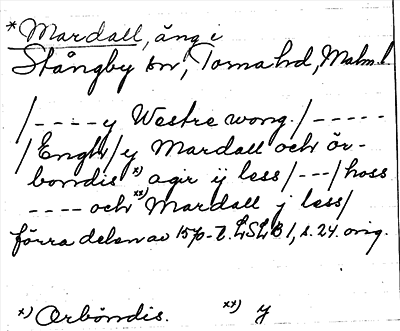 *Mardall, äng i
Stångby sn, Torna hd, Malm. l.
/----y Westre wong./-----
/Enghr/y Mardall och ör-
bondis x) agir ij less/---/hoss
----och xx) Mardall j less/
förra delen av 1570-t. LSLB 1, s. 24. orig.
x) Orböndis. xx) y